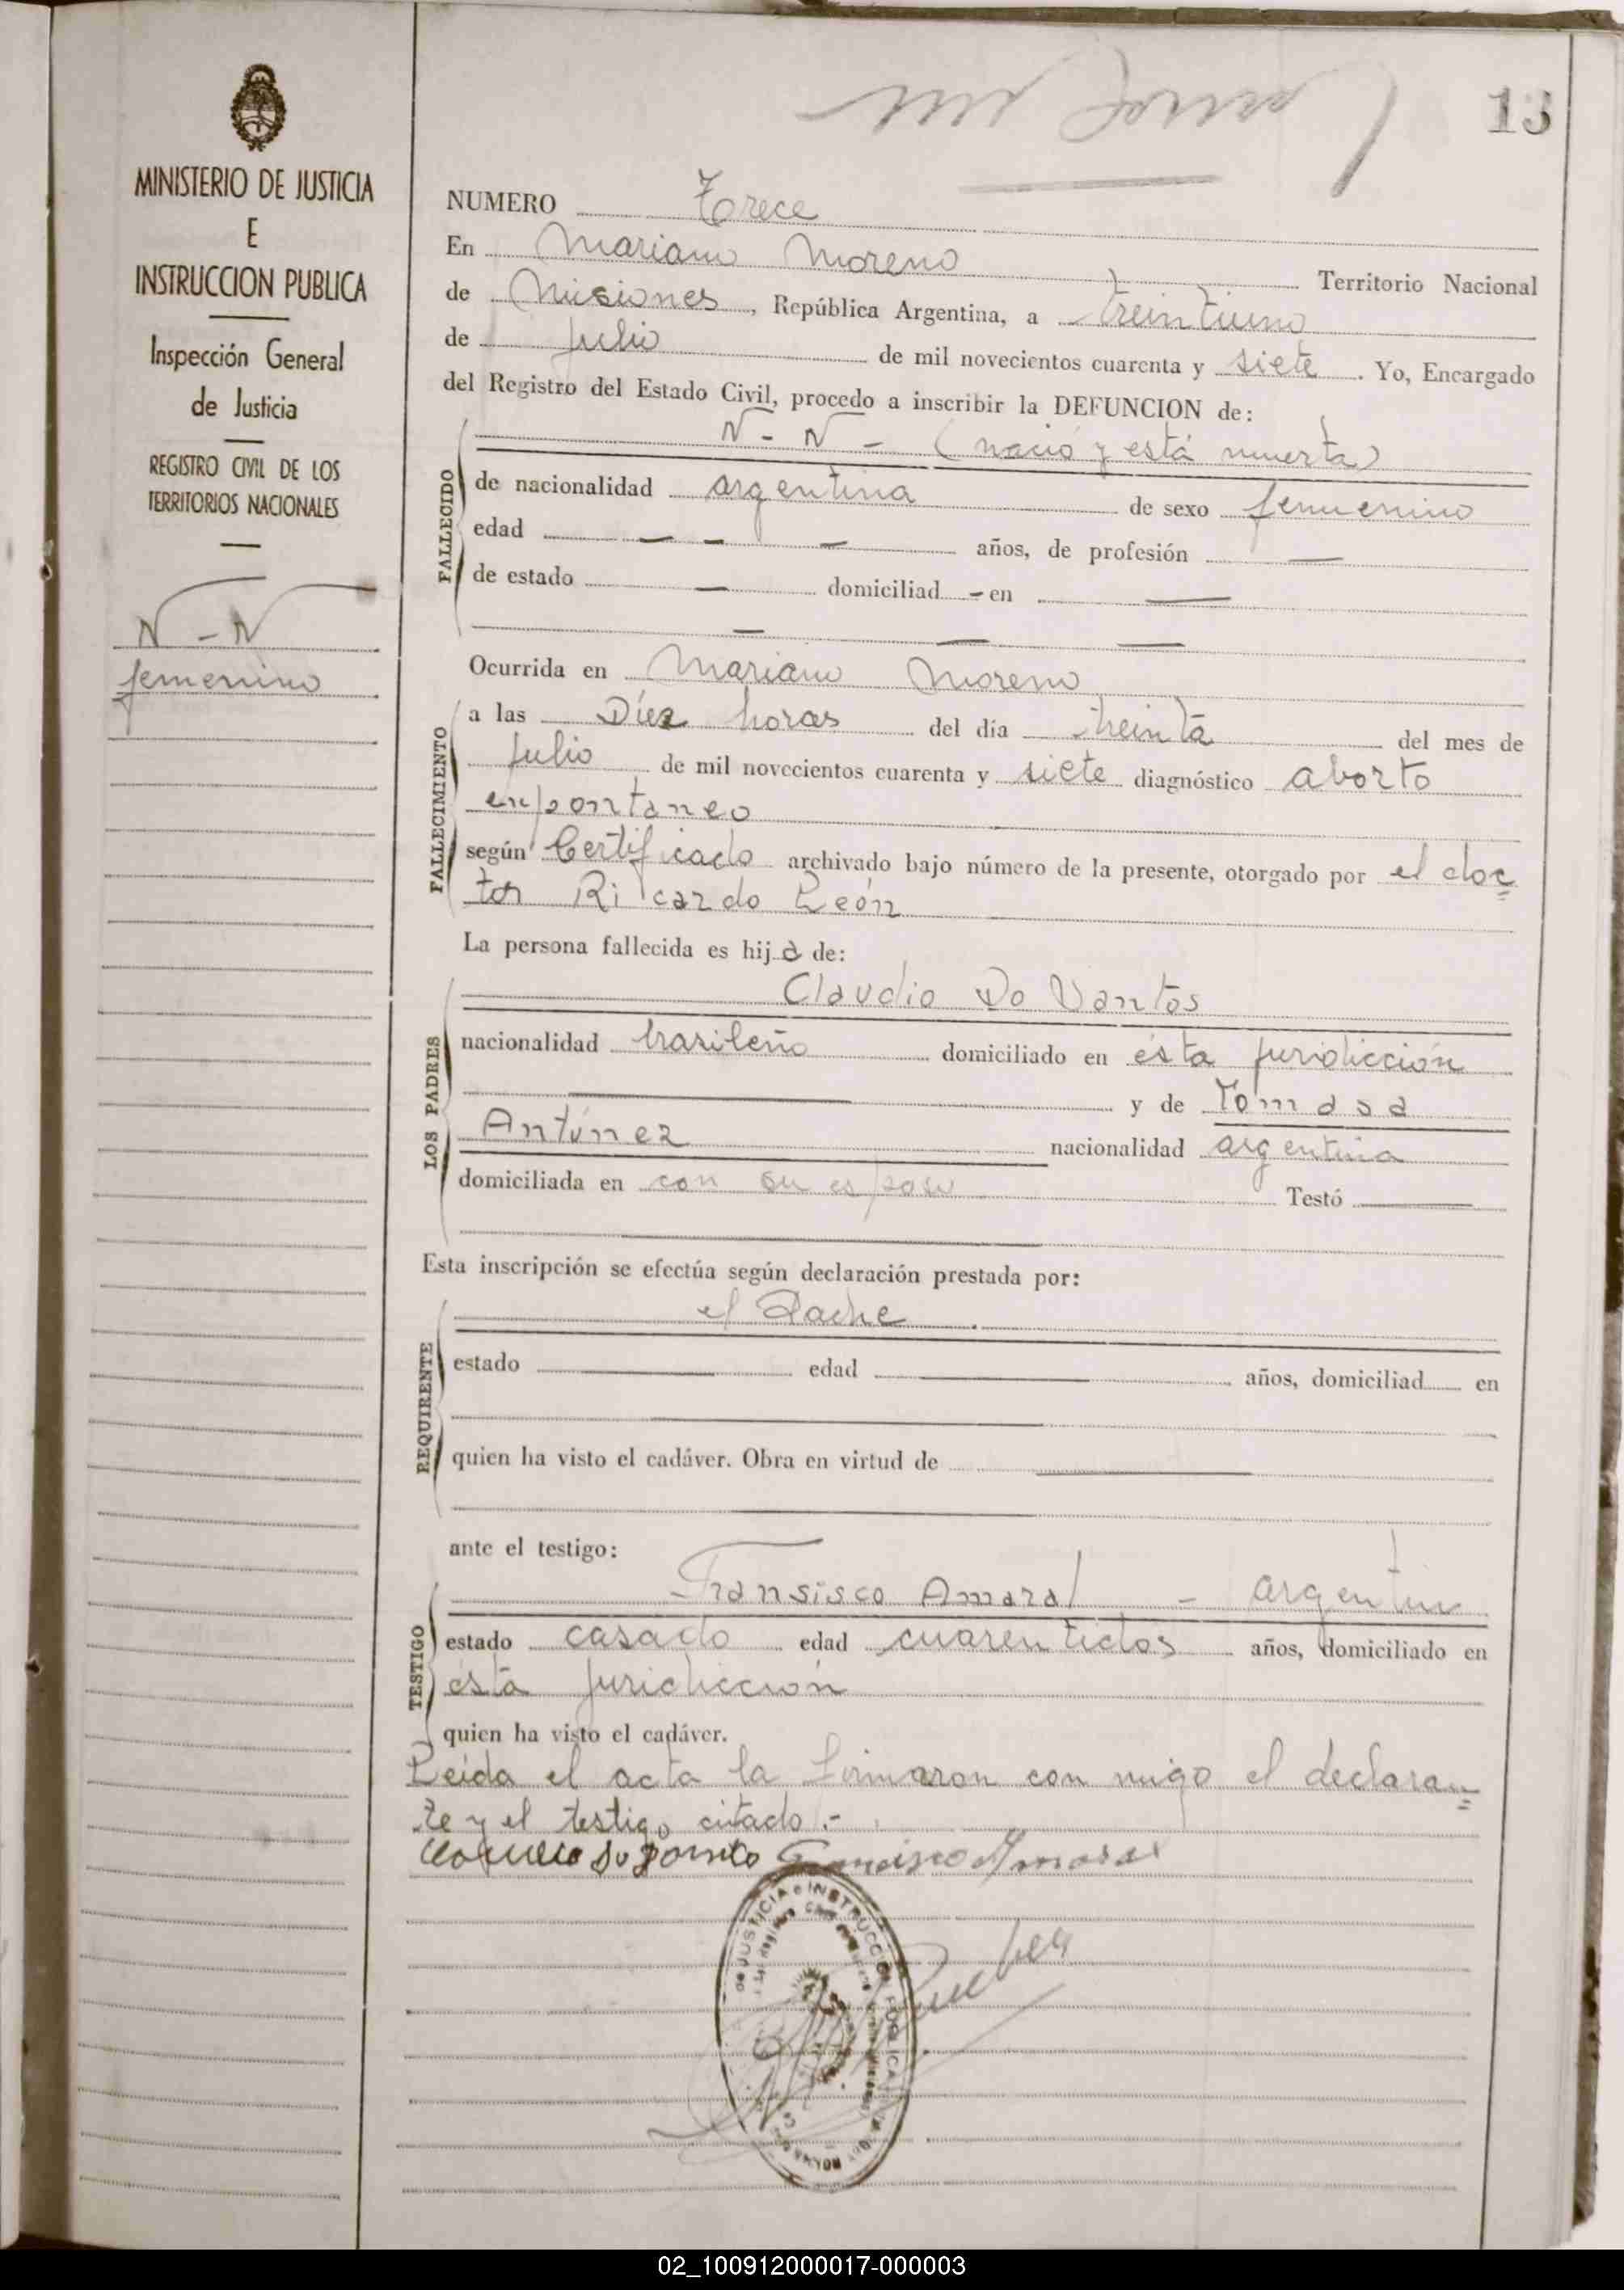 13
MINISTERIO DE JUSTICIA
E
INSTRUCCION PUBLICA
Inspección General
de Justicia
REGISTRO CIVIL DE LOS
TERRITORIOS NACIONALES
N - N
femenino
NUMERO Trece
En Mariano Moreno Territorio Nacional
de Misiones, República Argentina, a treintiuno
de Julio de mil novecientos cuarenta y siete. Yo, Encargado
del Registro del Estado Civil, procedo a inscribir la DEFUNCION de:
N - N - (nació y está muerta)
FALLECIDO
de nacionalidad argentina de sexo femenino
edad — — — años, de profesión —
de estado — domiciliad - en —
— — —
Ocurrida en Mariano Moreno
FALLECIMIENTO
a las Diez horas del día treinta del mes de
Julio de mil novecientos cuarenta y siete diagnóstico aborto
enpontaneo
según Certificado archivado bajo número de la presente, otorgado por el doc=
tor Ricardo León
La persona fallecida es hija de:
LOS PADRES
Claudio Do Santos
nacionalidad brasileño domiciliado en ésta juridicción
y de Tomasa
Antúnez nacionalidad argentina
domiciliada en con su esposo Testó
Esta inscripción se efectúa según declaración prestada por:
REQUIRENTE
el Padre.
estado edad años, domiciliad en
quien ha visto el cadáver. Obra en virtud de
ante el testigo:
TESTIGO
Fransisco Amaral - argentin
estado casado edad cuarentidos años, domiciliado en
ésta juridicción
quien ha visto el cadáver.
Leida el acta la firmaron con migo el declaran=
te y el testigo citado.-
Francisco Amaral
JUSTICIA e INSTRUCCION PUBLICA
02_100912000017-000003